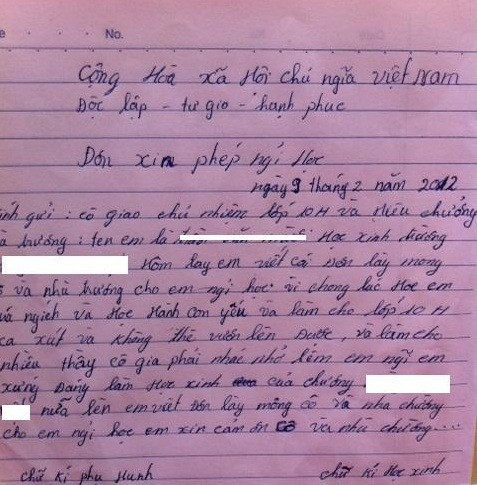 No.
Cộng Hoà xã Hội chủ ngĩa việt Nam
Độc lập - tư gio - hạnh phuc
Đơn xin phép ngỉ Học
ngày 9 tháng 2 năm 2012
ính gửi : cô giao chủ nhiệm lớp 10 H và Hiêu chưởng
à trường : tên em là Học xinh trường
Hôm lay em viết cái Đơn lày mong
và nhà trường cho em ngỉ học vì chong lúc Học em
ngịch và Học Hành con yếu và làm cho lớp 10 H
ca xút và không thể vươn lên Được, và làm cho
nhiều thầy cô gia phải nhac nhở liệm em ngĩ em
xưng Đáng làm Học xinh của chương
nữa lên em viết Đơn lày mông cô và nha chường
cho em ngỉ học em xin cảm ơn cô và nhà chường....
chữ kí phu Hunh
chữ kí Học xinh